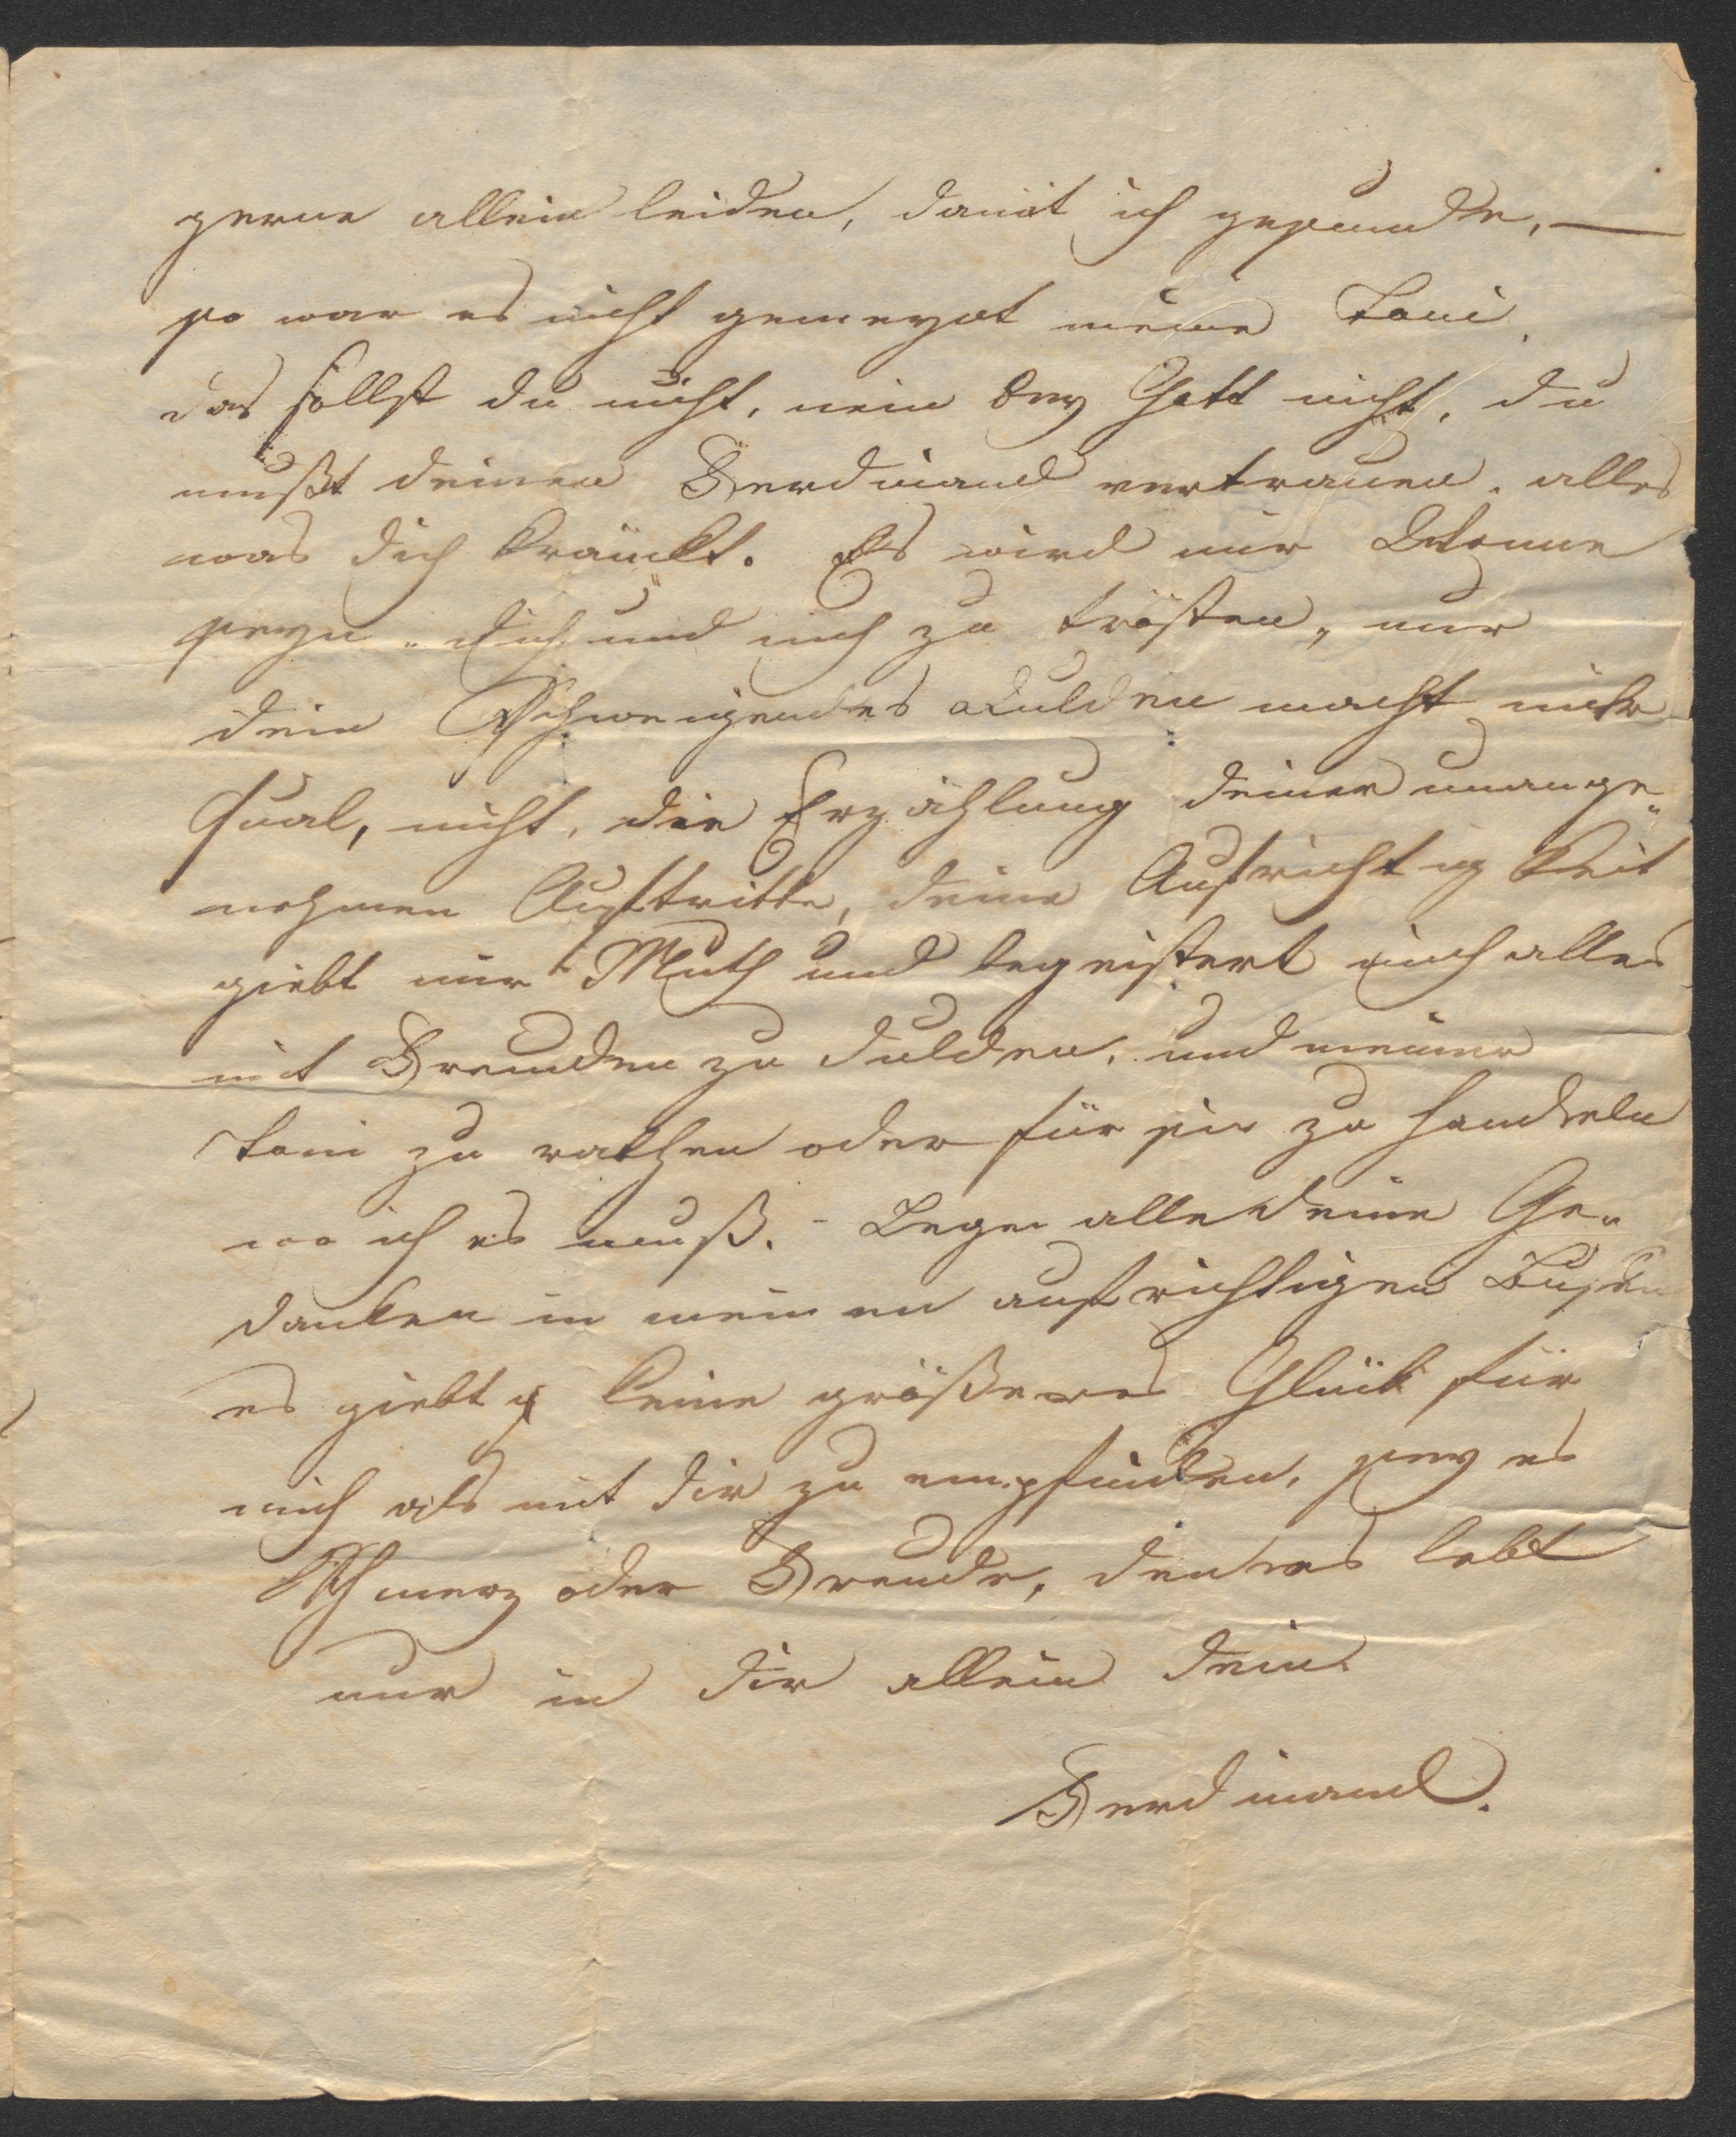 gerne allein leiden, damit ich gesundte, —
so war es nicht gemeynt meine Toni.
das sollst du nicht, nein bey Gott nicht, du
mußt deinen Ferdinand vertrauen. alles
was dich kränkt. Es wird mir Wonne
seyn dich und mich zu trösten, nur
dein Schweigendes dulden macht mir
Qual, nicht, die Erzählung deiner unange„
nehmen Auftritte, deine Aufrichtigkeit
giebt mir Muth und begeistert mich alles
mit Freuden zu dulden, und meiner
Toni zu rathen oder für sie zu handeln
wo ich es muß. - Lege alle deine Ge„
danken in meinen aufrichtigen Busen
es giebt keine größeres Glück für
mich als mit dir zu empfinden, sey es
Schmerz oder Freude, den es lebt
nur in dir allein dein
Ferdinand.